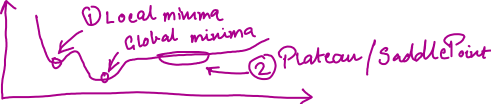 ① Local minima
Global minima
② Plateau / Saddle Point